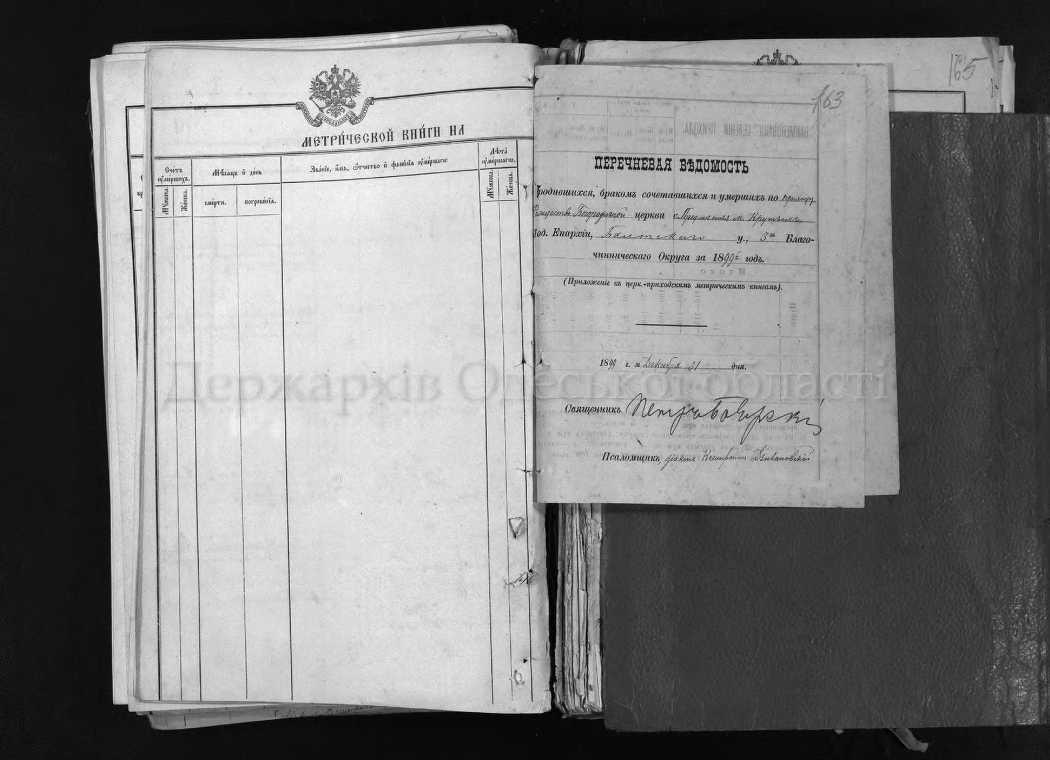 165
МЕТРИ́ЧЕСКОЙ КНИ́ГИ НА
Счетъ умершихъ.
Мѣсяцъ и день
Зва́ніе, и́мя, о́тчество и фами́лія уме́ршаго
Лѣта умершаго.
Мужеска.
Женска.
сме́рти.
погребе́нія.
Мужеска.
Женска.
163
ПЕРЕЧНЕВАЯ ВѢДОМОСТЬ
родившихся, бракомъ сочетавшихся и умершихъ по
Рождество Богородичной церкви м.
Под. Епархіи, Балтскаго у., 5го Благо-
чинническаго Округа за 1899й годъ.
(Приложеніе къ церк.-приходскимъ метрическимъ книгамъ).
1899 г. Декабря 31 дня.
Священникъ Петръ
Псаломщикъ,
Держархів Одеської області